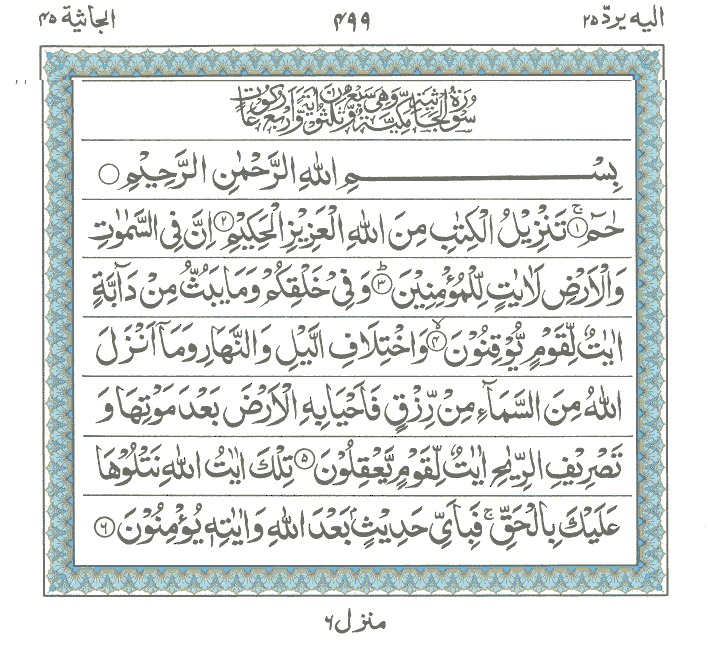 الیه یردّ ۲۵ ۴۹۹ الجاثیة ۴۵
سُوْرَةُ الْجَاثِيَةِ مَكِّيَّةٌ وَّهِيَ سَبْعٌ وَّثَلٰثُوْنَ اٰيَةً وَّاَرْبَعُ رُكُوْعَاتٍ
بِسْمِ اللهِ الرَّحْمٰنِ الرَّحِيْمِ ○
حٰمٓ ۚ﴿۱﴾ تَنْزِيْلُ الْكِتٰبِ مِنَ اللهِ الْعَزِيْزِ الْحَكِيْمِ ﴿۲﴾ اِنَّ فِى السَّمٰوٰتِ
وَالْاَرْضِ لَاٰيٰتٍ لِّلْمُؤْمِنِيْنَ ؕ﴿۳﴾ وَفِىْ خَلْقِكُمْ وَمَا يَبُثُّ مِنْ دَآبَّةٍ
اٰيٰتٌ لِّقَوْمٍ يُّوْقِنُوْنَ ۙ﴿۴﴾ وَاخْتِلَافِ الَّيْلِ وَالنَّهَارِ وَمَاۤ اَنْزَلَ
اللهُ مِنَ السَّمَآءِ مِنْ رِّزْقٍ فَاَحْيَا بِهِ الْاَرْضَ بَعْدَ مَوْتِهَا وَ
تَصْرِيْفِ الرِّيٰحِ اٰيٰتٌ لِّقَوْمٍ يَّعْقِلُوْنَ ﴿۵﴾ تِلْكَ اٰيٰتُ اللهِ نَتْلُوْهَا
عَلَيْكَ بِالْحَقِّ ۚ فَبِاَىِّ حَدِيْثٍۭ بَعْدَ اللهِ وَاٰيٰتِهٖ يُؤْمِنُوْنَ ﴿۶﴾
منزل ۶